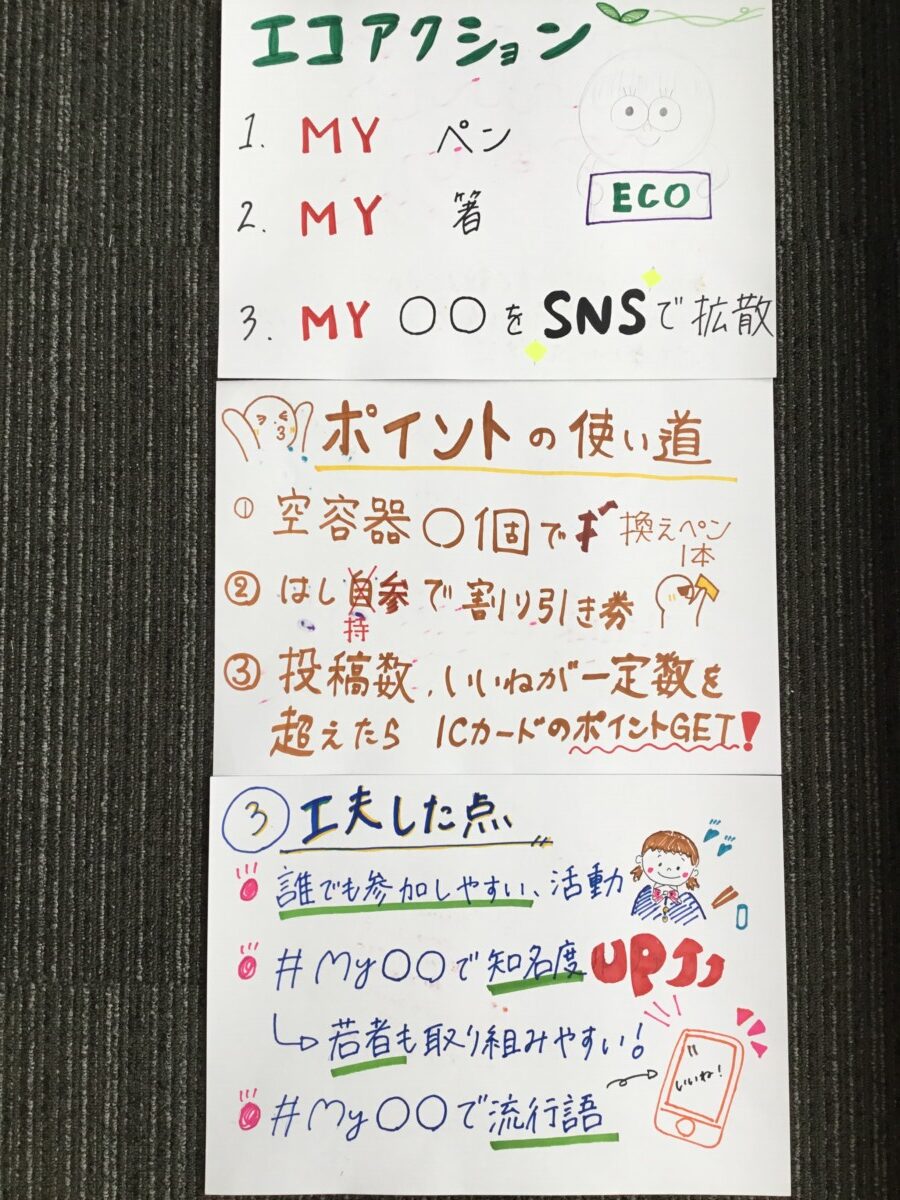 エコアクション
1. MY ペン
2. MY 箸
ECO
3. MY ○○をSNSで拡散
ポイントの使い道
① 空容器○個で換えペン
1本
② はし参で割り引き券
持
③ 投稿数、いいねが一定数を
超えたら ICカードのポイントGET!
③ 工夫した点
誰でも参加しやすい、活動
#My○○で知名度UP
若者も取り組みやすい!
いいね!
#My○○で流行語